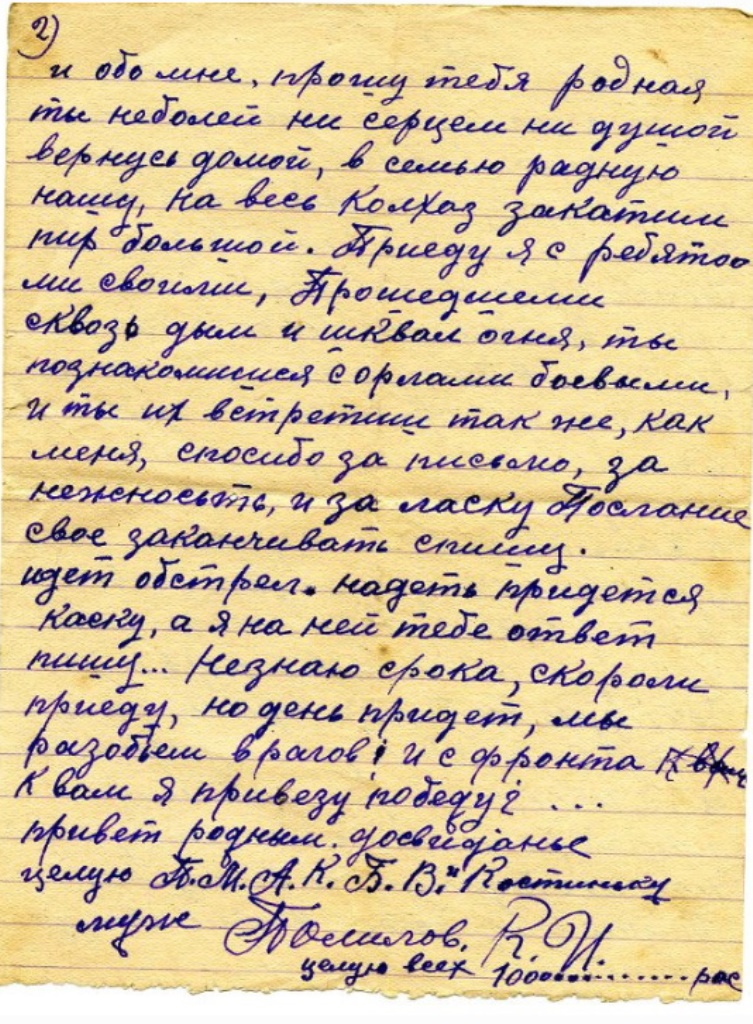 2)
и обо мне, прошу тебя родная
ты неболей ни серцем ни душой
вернусь домой, в семью радную
нашу, на весь Колхоз закатим
пир большой. Приеду я с ребятоо
ми своими, Прошедшеми
сквозь дым и шквал огня, ты
познакомишся с орлами боевыми,
и ты их встретиш так же, как
меня, спосибо за письмо, за
нежносьть, и за ласку Послание
свое заканчивать спишу.
идет обстрел. надеть придется
каску, а я на ней тебе ответ
пишу... Незнаю срока, скороли
приеду, но день придет, мы
разобьем врагов! и с фронта
К вам я привезу победу! ...
привет родным. досвиданье
целую П.М.А.К.Б.В." Костинску
муж Помилов. К. И.
целую всех 100000.......... рас